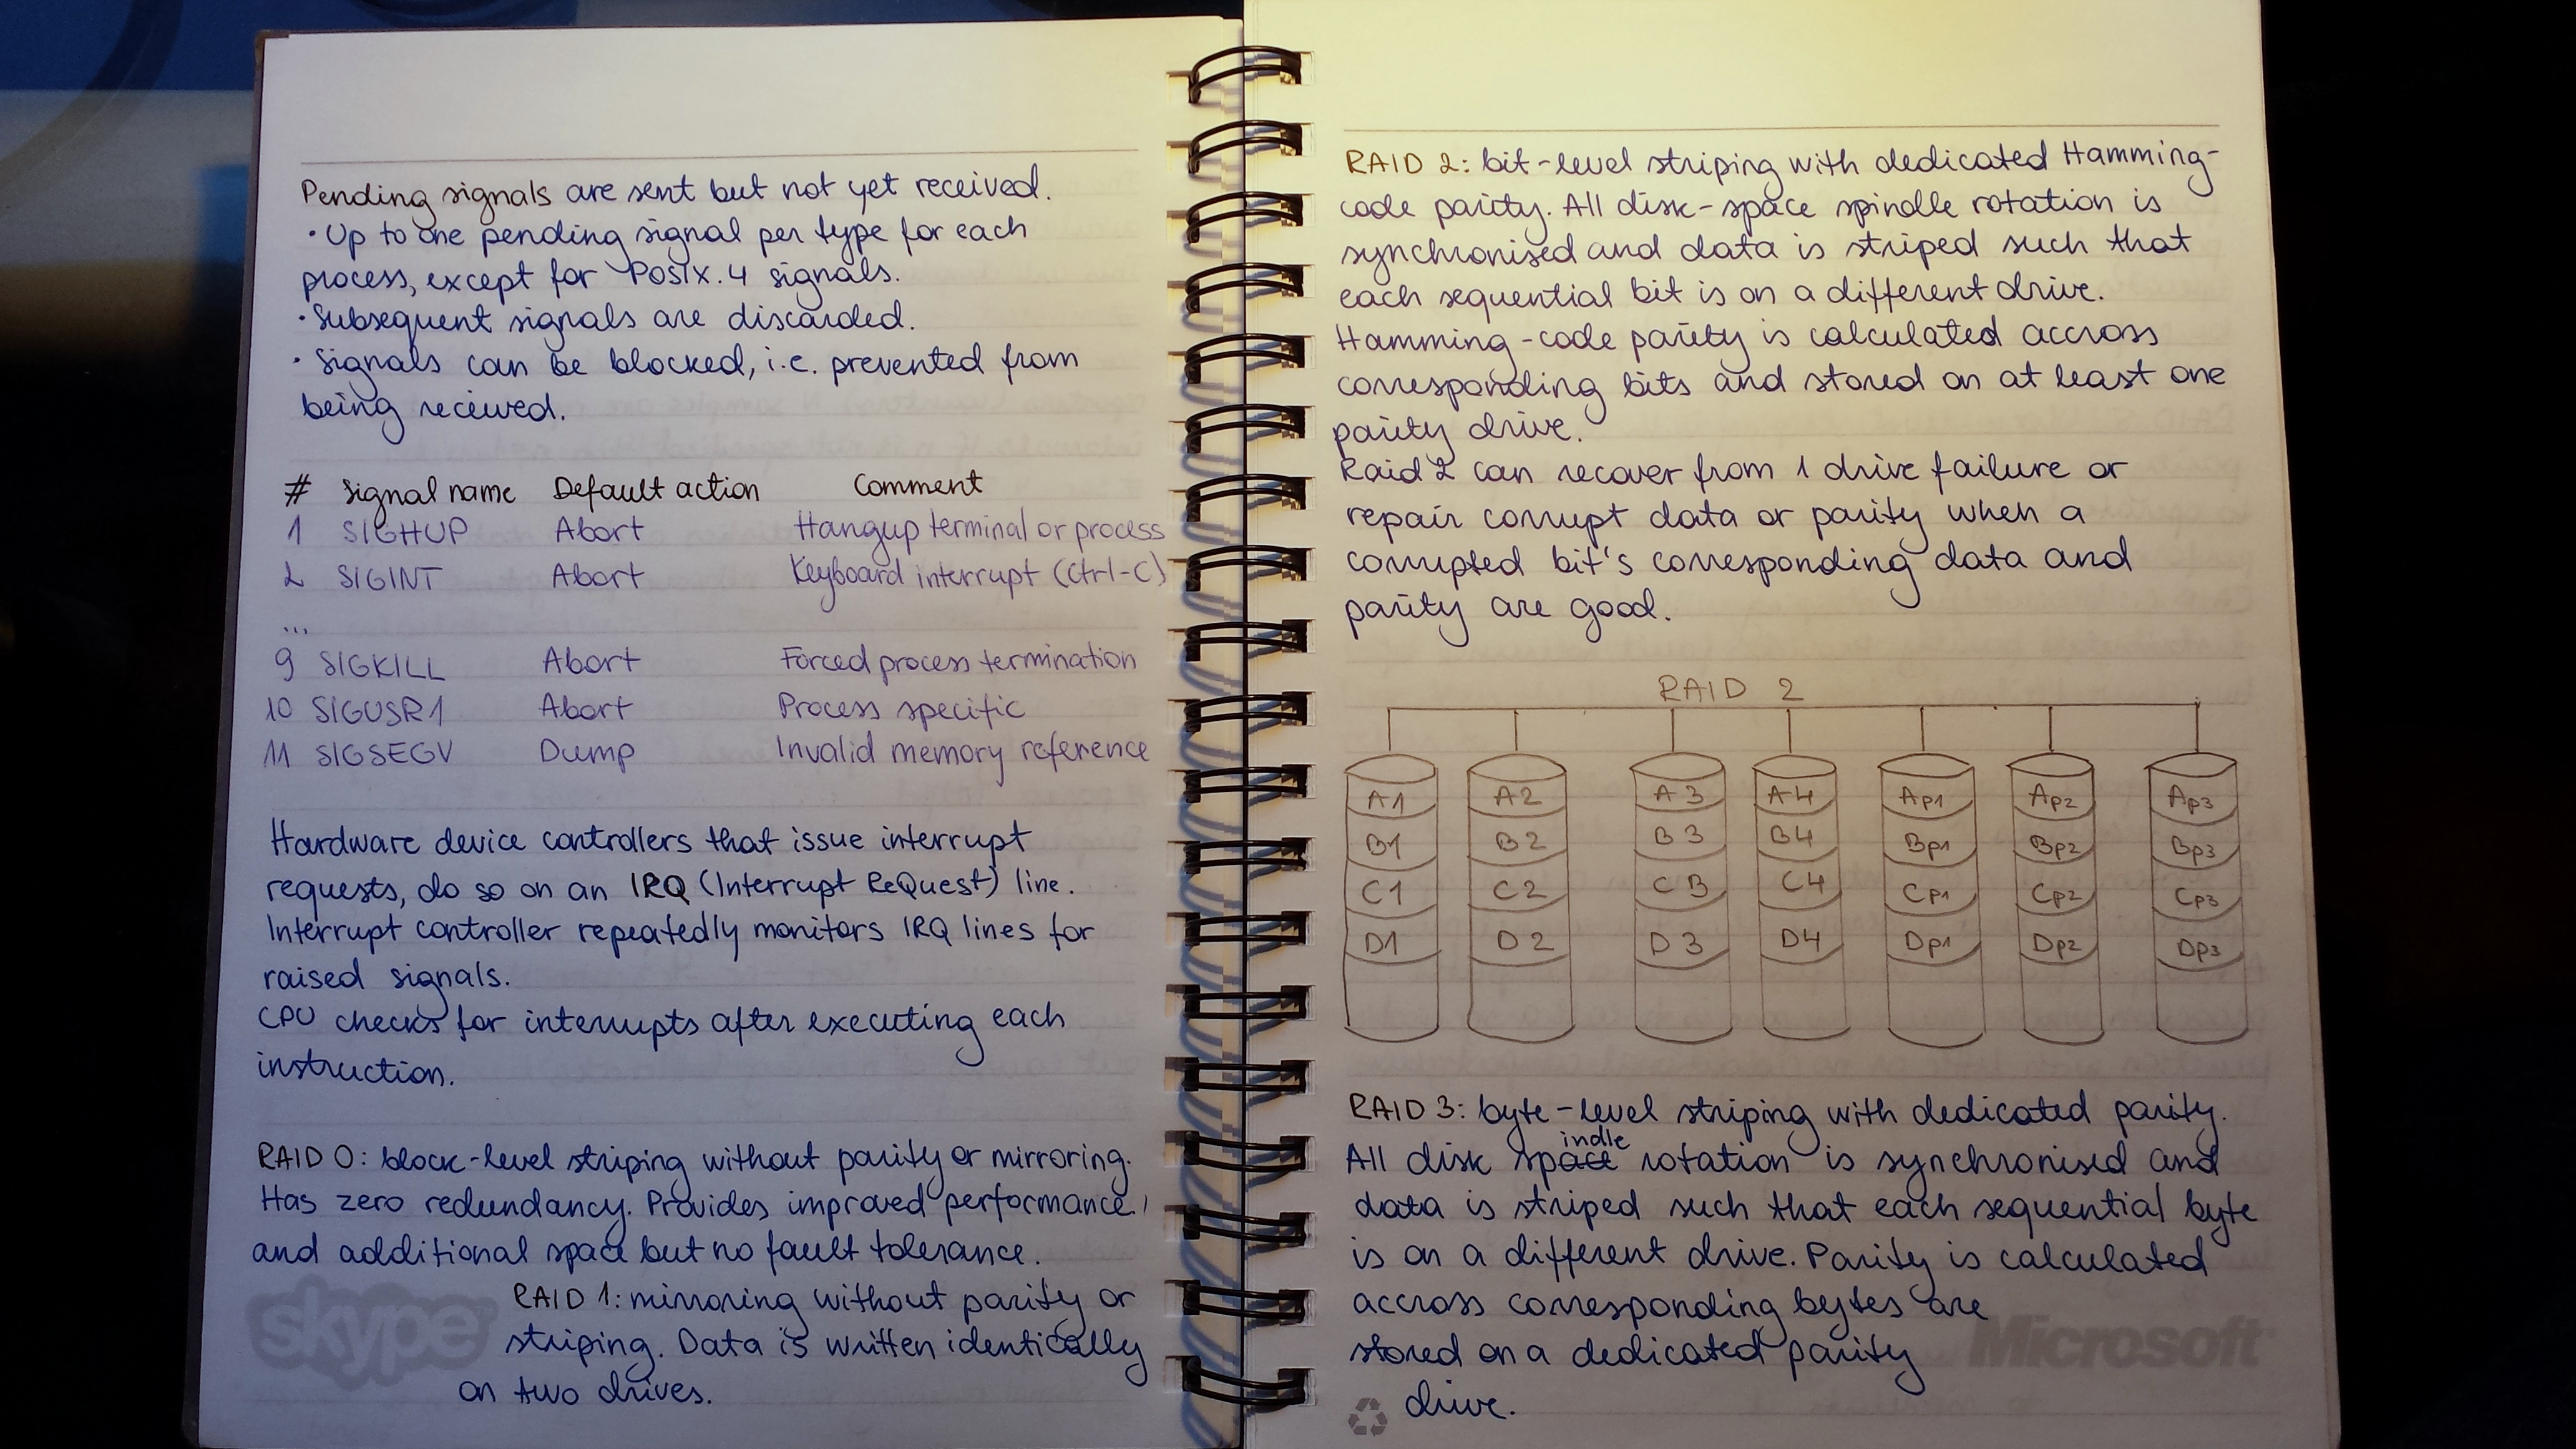 Pending signals are sent but not yet received.
• Up to one pending signal per type for each
process, except for POSIX.4 signals.
• Subsequent signals are discarded.
• Signals can be blocked, i.e. prevented from
being received.
# Signal name Default action Comment
1 SIGHUP Abort Hangup terminal or process
2 SIGINT Abort Keyboard interrupt (Ctrl-C)
...
9 SIGKILL Abort Forced process termination
10 SIGUSR1 Abort Process specific
11 SIGSEGV Dump Invalid memory reference
Hardware device controllers that issue interrupt
requests, do so on an IRQ (Interrupt ReQuest) line.
Interrupt controller repeatedly monitors IRQ lines for
raised signals.
CPU checks for interrupts after executing each
instruction.
RAID 0: block-level striping without parity or mirroring.
Has zero redundancy. Provides improved performance
and additional space but no fault tolerance.
RAID 1: mirroring without parity or
striping. Data is written identically
on two drives.
skype
RAID 2: bit-level striping with dedicated Hamming-
code parity. All disk-space spindle rotation is
synchronised and data is striped such that
each sequential bit is on a different drive.
Hamming-code parity is calculated accross
corresponding bits and stored on at least one
parity drive.
Raid 2 can recover from 1 drive failure or
repair corrupt data or parity when a
corrupted bit's corresponding data and
parity are good.
RAID 2
A1 A2 A3 A4 Ap1 Ap2 Ap3
B1 B2 B3 B4 Bp1 Bp2 Bp3
C1 C2 C3 C4 Cp1 Cp2 Cp3
D1 D2 D3 D4 Dp1 Dp2 Dp3
RAID 3: byte-level striping with dedicated parity.
All disk spindle rotation is synchronised and
data is striped such that each sequential byte
is on a different drive. Parity is calculated
accross corresponding bytes are
stored on a dedicated parity
drive.
Microsoft